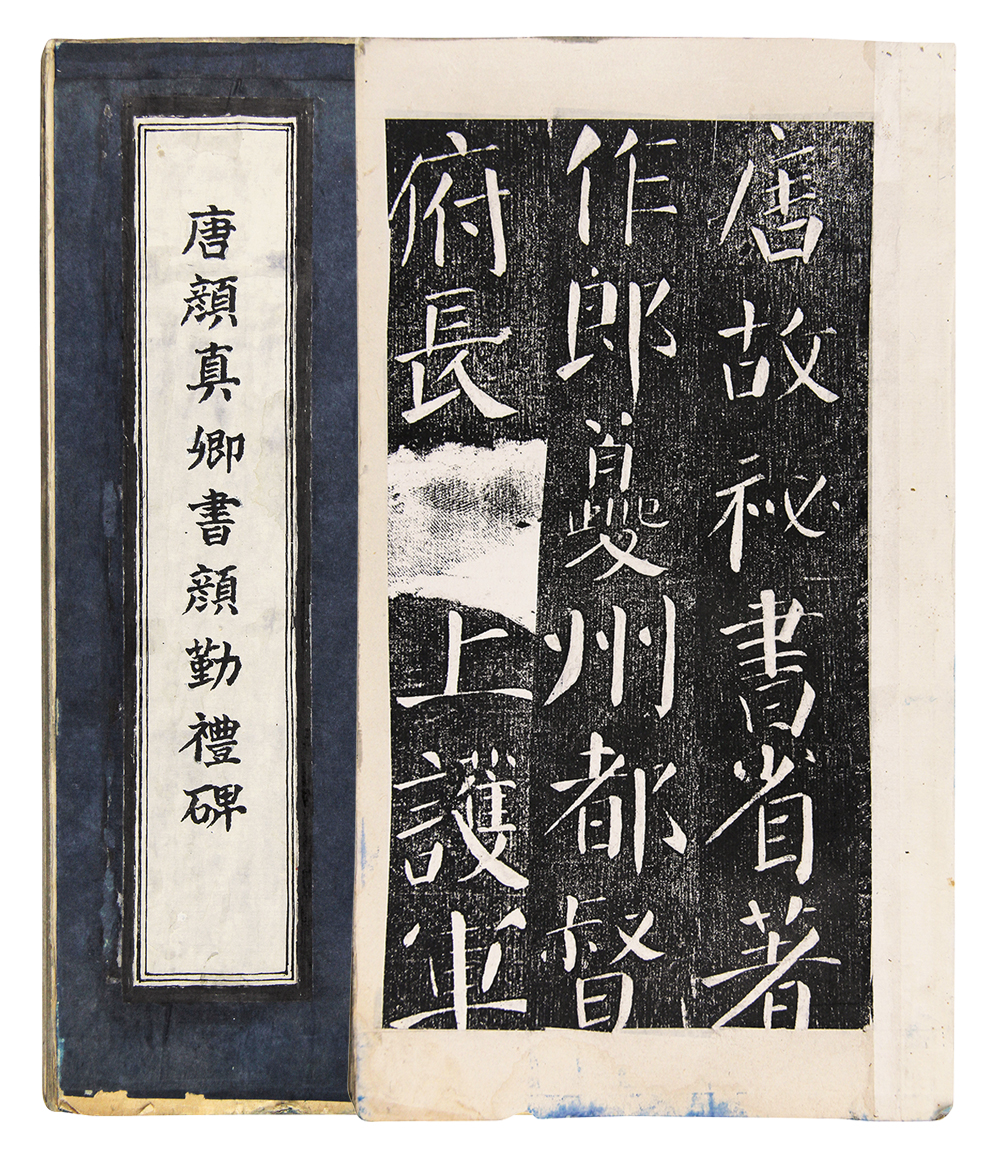 唐顔真卿書顔勤禮碑
唐故祕書省著
作郎夔州都督
府長上護軍